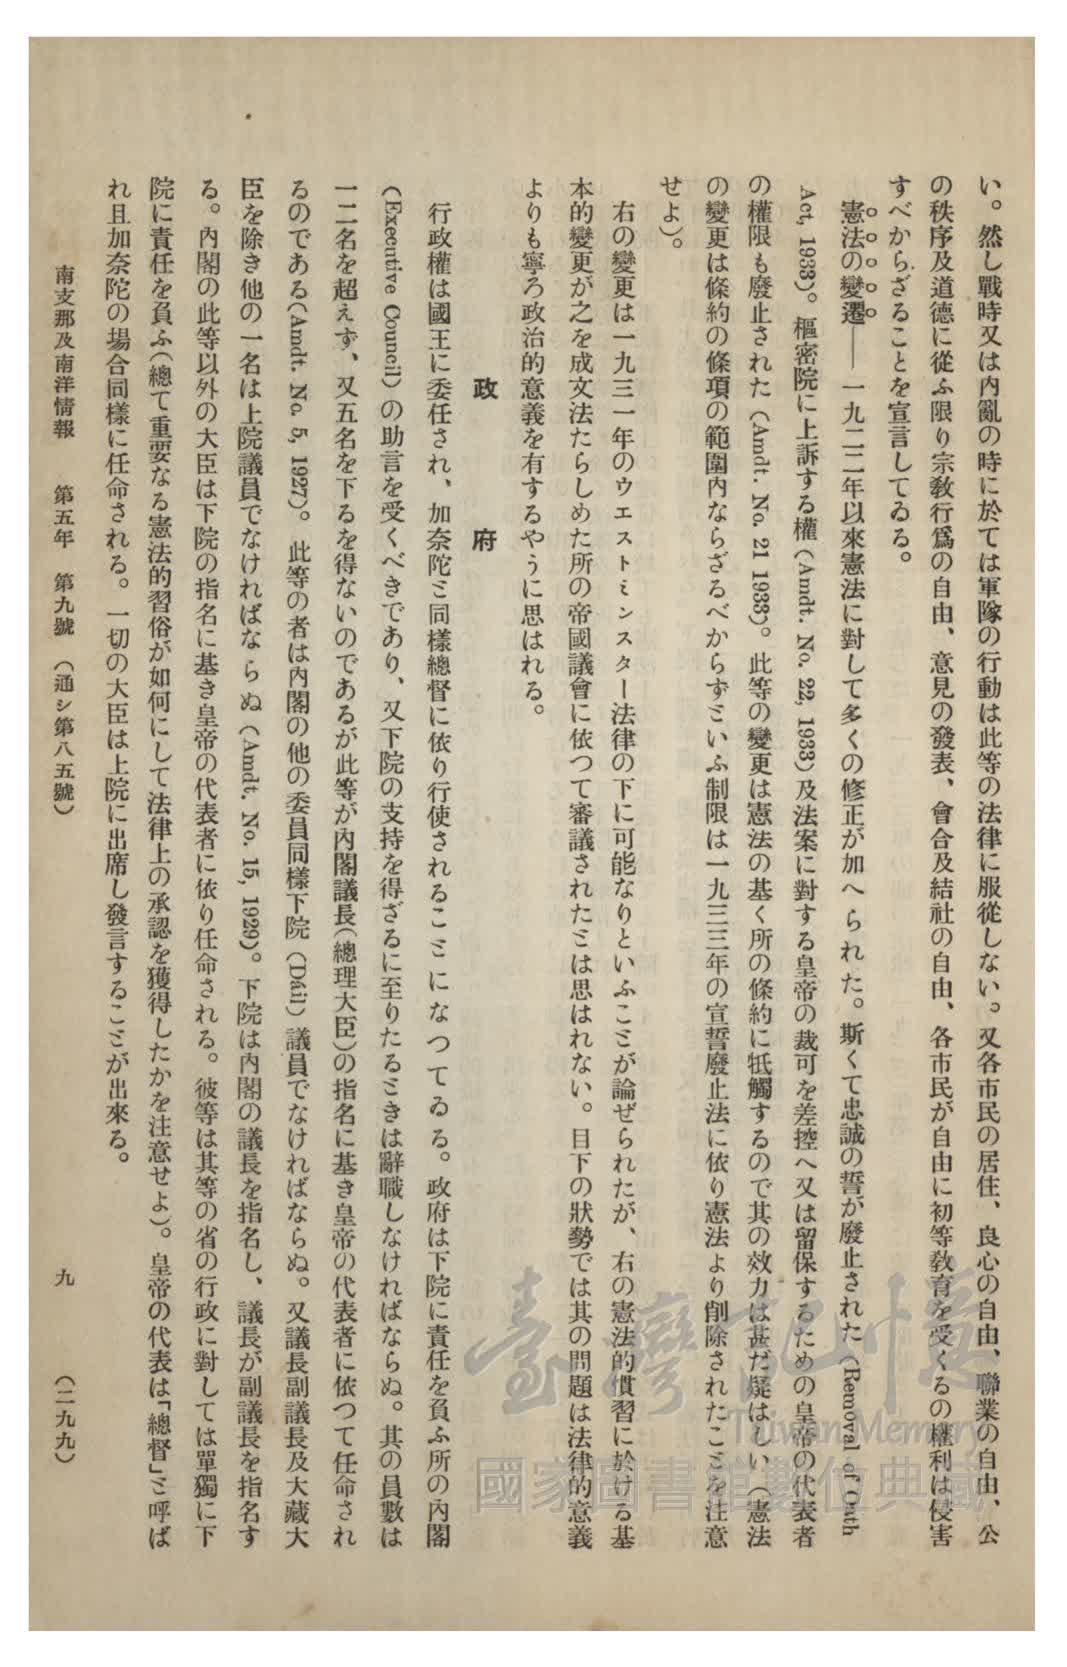 い。然し戰時又は內亂の時に於ては軍隊の行動は此等の法律に服從しない。又各市民の居住、良心の自由、聯業の自由、公
の秩序及道德に從ふ限り宗敎行爲の自由、意見の發表、會合及結社の自由、各市民が自由に初等敎育を受くるの權利は侵害
すべからざることを宣言してゐる。
憲法の變遷——一九二二年以來憲法に對して多くの修正が加へられた。斯くて忠誠の誓が廢止された（Removal of Oath
Act, 1933)。樞密院に上訴する權（Amdt. No. 22, 1933）及法案に對する皇帝の裁可を差控へ又は留保するための皇帝の代表者
の權限も廢止された（Amdt. No. 21 1933)。此等の變更は憲法の基く所の條約に牴觸するので其の效力は甚だ疑はしい（憲法
の變更は條約の條項の範圍內ならざるべからずといふ制限は一九三三年の宣誓廢止法に依り憲法より削除されたことを注意
せよ）。
右の變更は一九三一年のウエストミンスター法律の下に可能なりといふことが論ぜられたが、右の憲法的慣習に於ける基
本的變更が之を成文法たらしめた所の帝國議會に依つて審議されたとは思はれない。目下の狀勢では其の問題は法律的意義
よりも寧ろ政治的意義を有するやうに思はれる。
政府
行政權は國王に委任され、加奈陀と同樣總督に依り行使されることになつてゐる。政府は下院に責任を負ふ所の內閣
（Executive Council）の助言を受くべきであり、又下院の支持を得ざるに至りたるときは辭職しなければならぬ。其の員數は
一二名を超えず、又五名を下るを得ないのであるが此等が內閣議長（總理大臣）の指名に基き皇帝の代表者に依つて任命され
るのである（Amdt. No. 5, 1927)。此等の者は內閣の他の委員同樣下院（Dáil）議員でなければならぬ。又議長副議長及大藏大
臣を除き他の一名は上院議員でなければならぬ（Amdt. No. 15, 1929)。下院は內閣の議長を指名し、議長が副議長を指名す
る。內閣の此等以外の大臣は下院の指名に基き皇帝の代表者に依り任命される。彼等は其等の省の行政に對しては單獨に下
院に責任を負ふ（總て重要なる憲法的習俗が如何にして法律上の承認を獲得したかを注意せよ）。皇帝の代表は「總督」と呼ば
れ且加奈陀の場合同樣に任命される。一切の大臣は上院に出席し發言することが出來る。
南支那及南洋情報　第五年　第九號（通シ第八五號）　九　（二九九）
臺灣記憶
Taiwan Memory
國家圖書館數位典藏